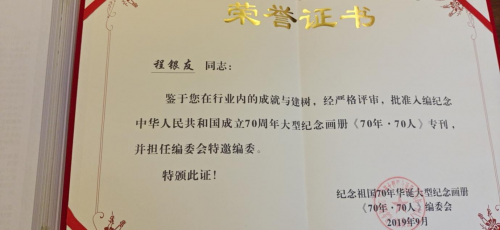 荣誉证书
程银友 同志：
鉴于您在行业内的成就与建树，经严格评审，批准入编纪念
中华人民共和国成立70周年大型纪念画册《70年·70人》专刊，
并担任编委会特邀编委。
特颁此证！
纪念祖国70年华诞大型纪念画册
《70年·70人》编委会
2019年9月